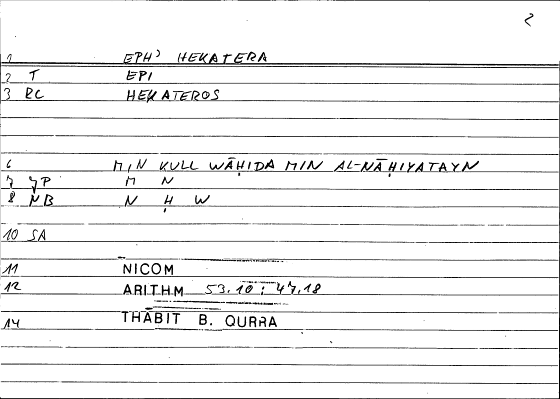 2
1 EPH' HEKATERA
2 T EPI
3 RC HEKATEROS
6 MIN KULL WĀḤIDA MIN AL-NĀḤIYATAYN
7 JP M N
8 NB N Ḥ W
10 SA
11 NICOM
12 ARITHM 53.10 ; 47.18
14 THĀBIT B. QURRA